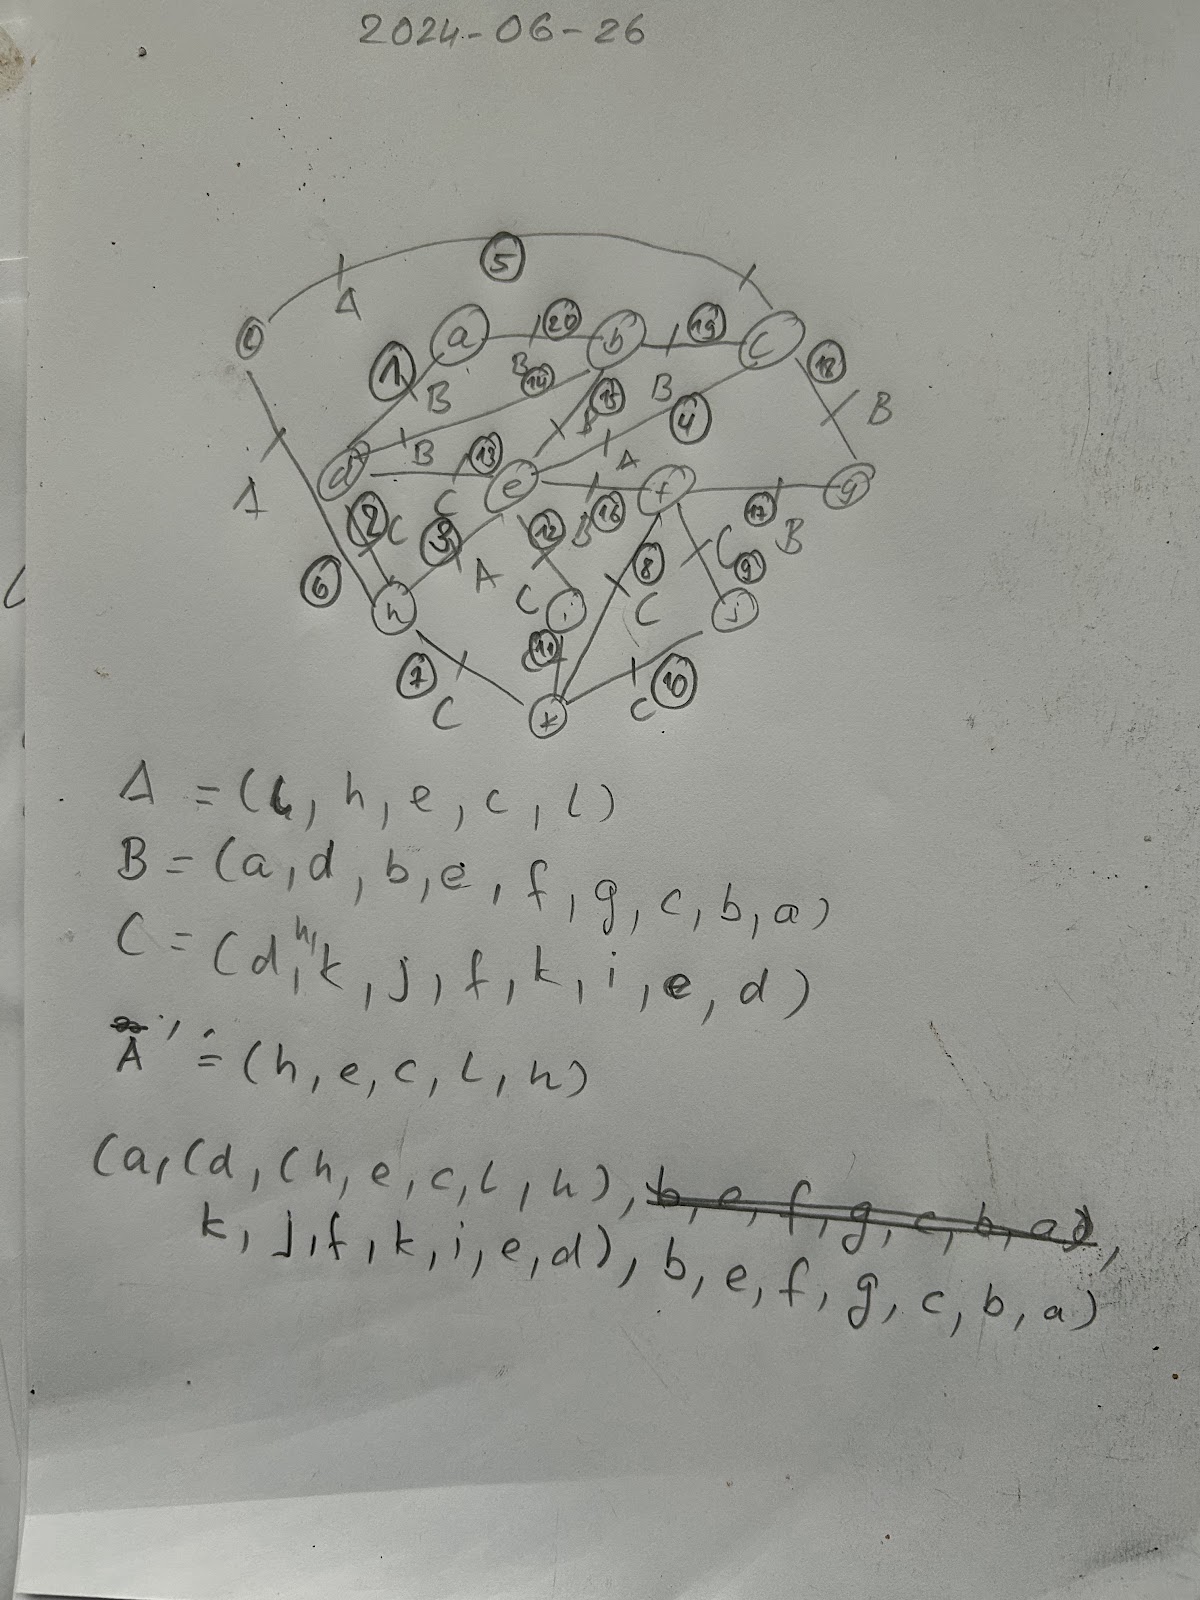 2024-06-26
5
A
l a 20 b 19 c 18
1 B B 14 15 B 4 B
B
d B 13 e A f g
C 16 17 B
2 C 3 A 12 B C 9
A 6 C 8 C
h i j
7 C 11 C 10
k
A = (l, h, e, c, l)
B = (a, d, b, e, f, g, c, b, a)
C = (d, h, k, j, f, k, i, e, d)
A' = (h, e, c, l, h)
(a, (d, (h, e, c, l, h), b, e, f, g, c, b, a),
k, j, f, k, i, e, d), b, e, f, g, c, b, a)